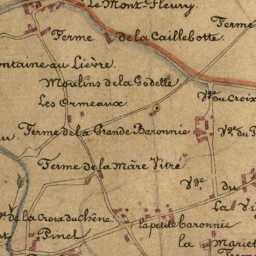 Le Mont-Fleury
Ferme
Ferme de la Caillebotte
ontaine au Lièvre
Moulins de la Godelle
Les Ormeaux
Vge du Croix
Ferme de la Grande Baronnie
Vge du P
Ferme de la Mare Vitré
Vge du
La Vi
ge de la Croix du Chêne
la petite baronnie
Pinel
la Mariet